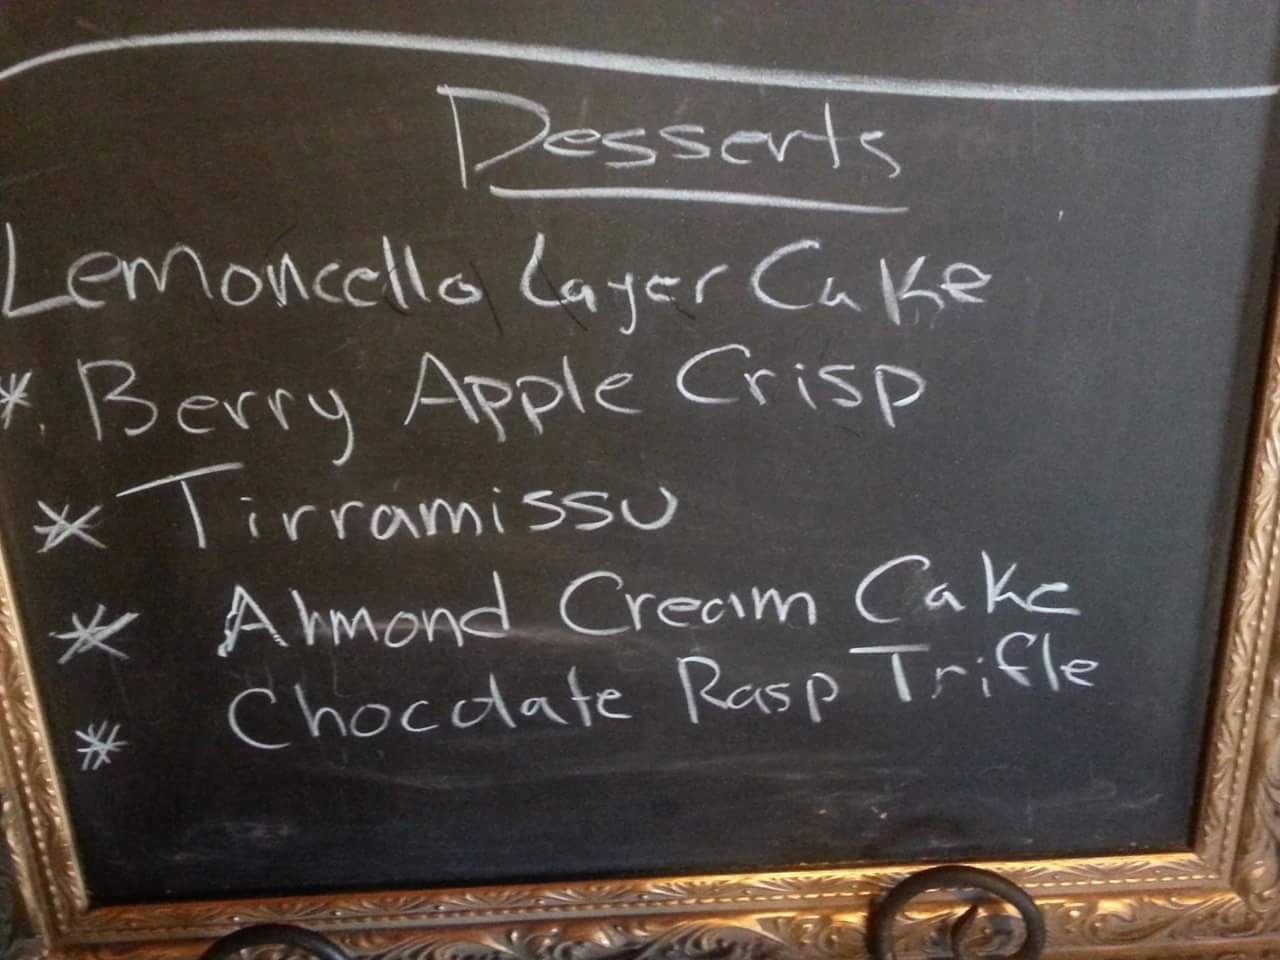 Desserts
Lemoncello Layer Cake
* Berry Apple Crisp
* Tirramissu
* Almond Cream Cake
* Chocolate Rasp Trifle